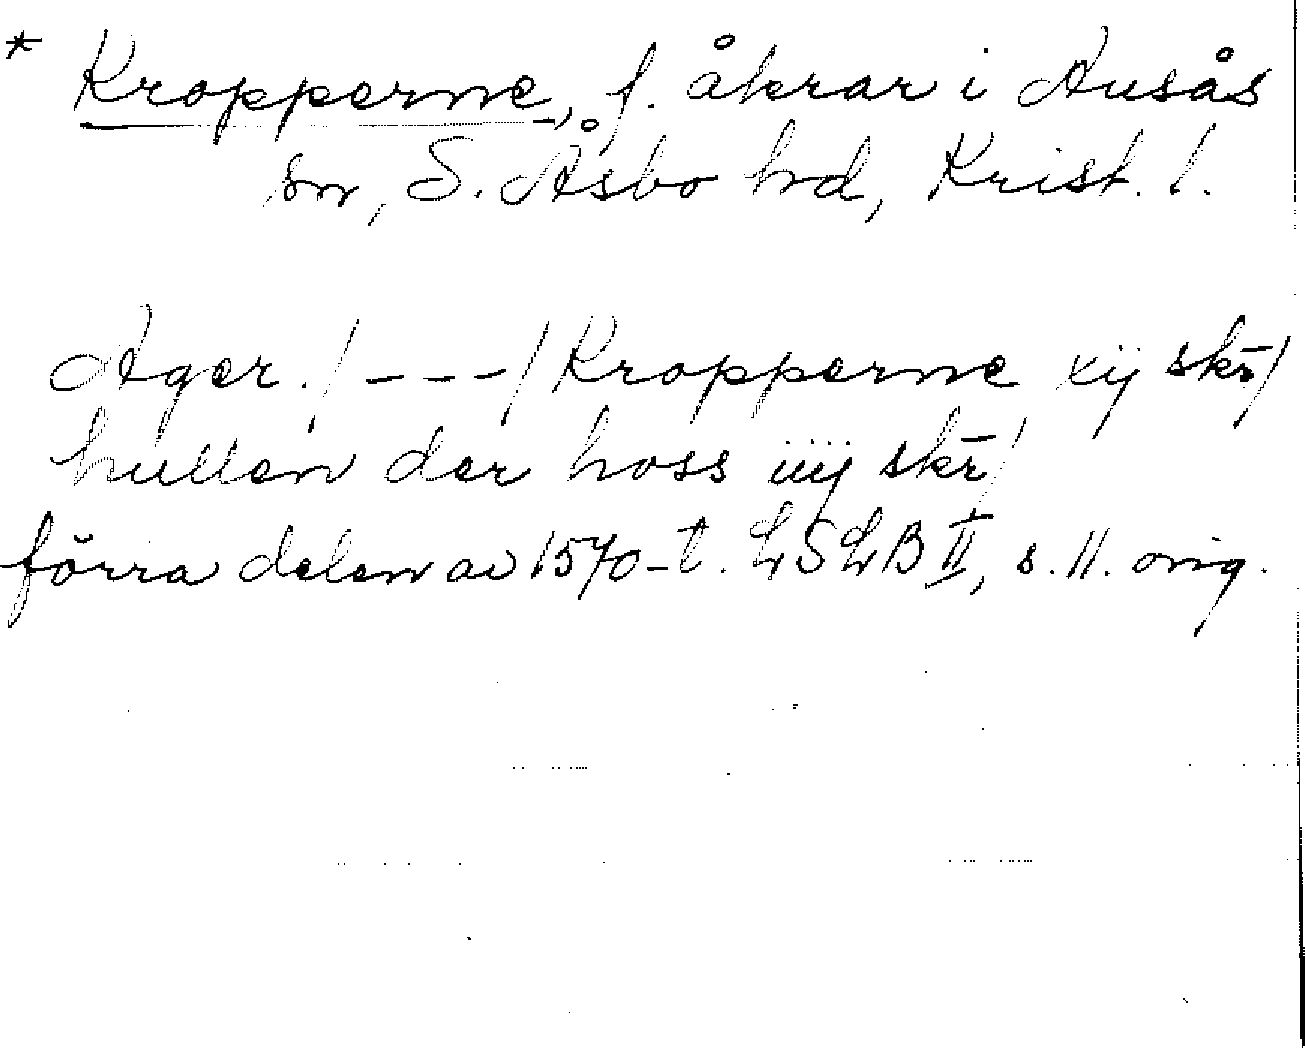 * Kropperne, f. åkrar i Ausås
sn, S. Åsbo hrd, Krist. l.
Ager. /---/ Kropperne xij skr̄/
hullen der hoss iiij skr̄/
förra delen av 1570-t. LSLB II, s. 11. orig.